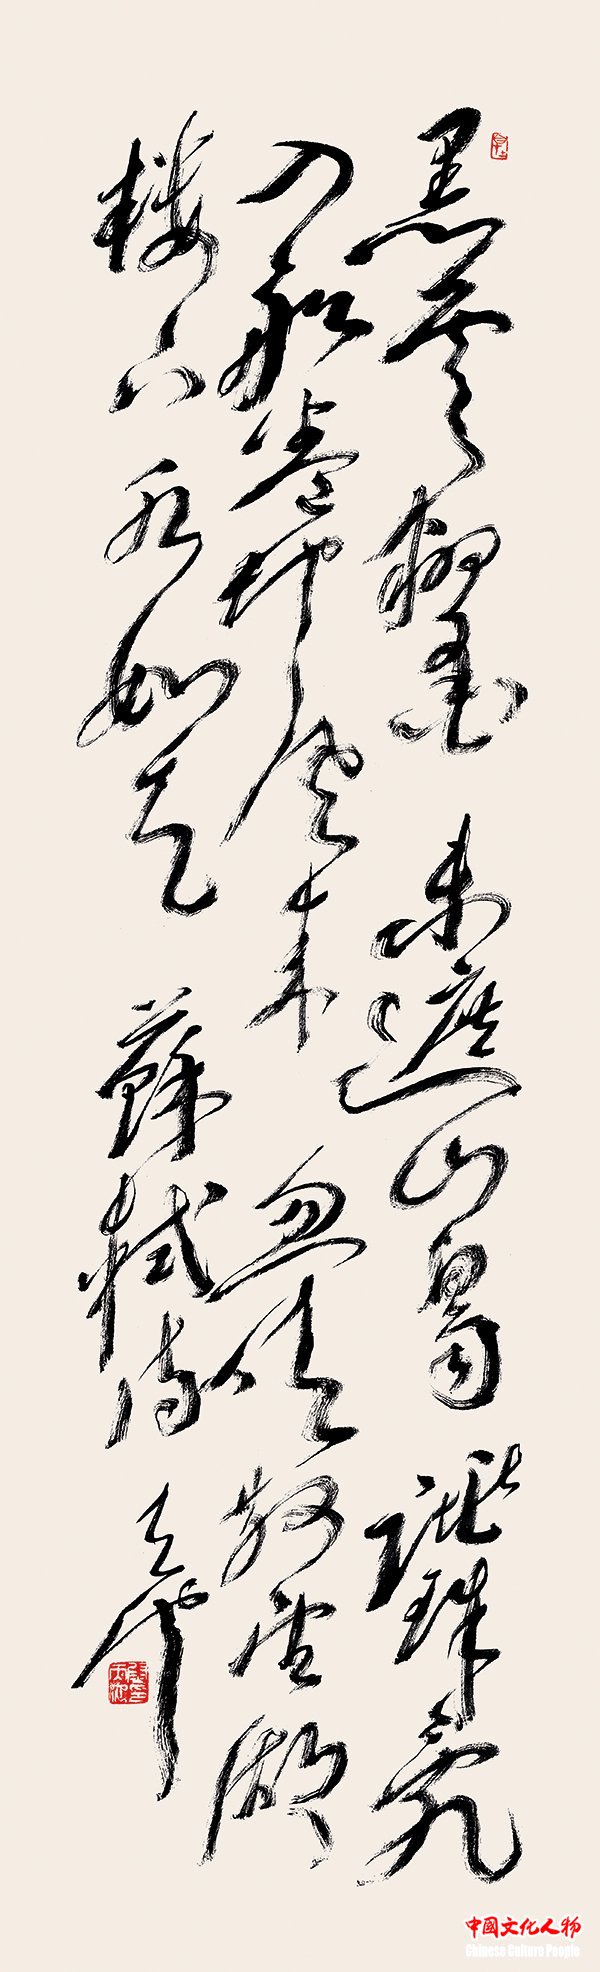 黑雲翻墨未遮山白雨跳珠亂
入船卷地風來忽吹散望湖
樓下水如天 蘇軾詩
中國文化人物
Chinese Culture People